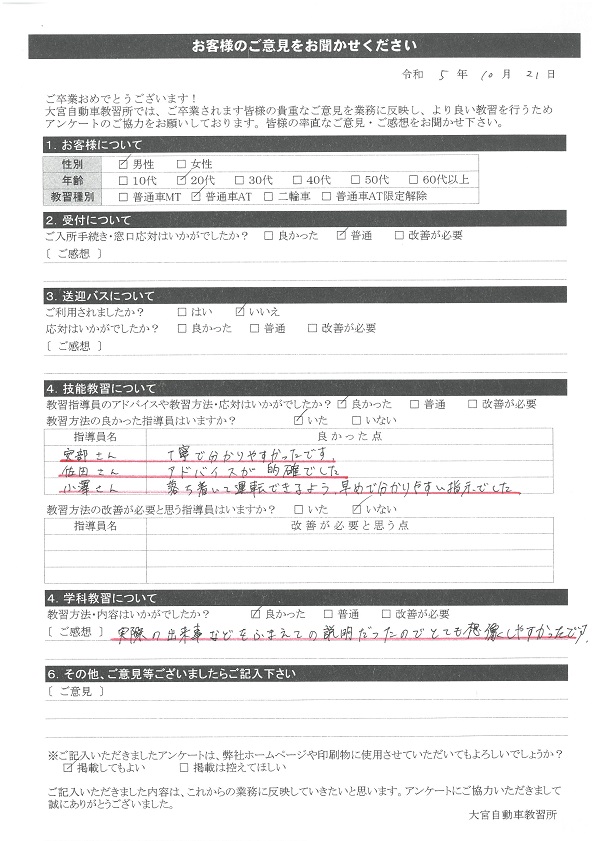 お客様のご意見をお聞かせください
令和 5 年 10 月 21 日
ご卒業おめでとうございます！
大宮自動車教習所では、ご卒業されます皆様の貴重なご意見を業務に反映し、より良い教習を行うため
アンケートのご協力をお願いしております。皆様の率直なご意見・ご感想をお聞かせ下さい。
1. お客様について
性別 ☑男性 □女性
年齢 □10代 ☑20代 □30代 □40代 □50代 □60代以上
教習種別 □普通車MT ☑普通車AT □二輪車 □普通車AT限定解除
2. 受付について
ご入所手続き・窓口応対はいかがでしたか？ □良かった ☑普通 □改善が必要
〔 ご感想 〕
3. 送迎バスについて
ご利用されましたか？ □はい ☑いいえ
応対はいかがでしたか？ □良かった □普通 □改善が必要
〔 ご感想 〕
4. 技能教習について
教習指導員のアドバイスや教習方法・応対はいかがでしたか？ ☑良かった □普通 □改善が必要
教習方法の良かった指導員はいますか？ ☑いた □いない
指導員名 良かった点
安部さん 丁寧で分かりやすかったです。
佐田さん アドバイスが的確でした
小澤さん 落ち着いて運転できるよう、早めで分かりやすい指示でした
教習方法の改善が必要と思う指導員はいますか？ □いた ☑いない
指導員名 改善が必要と思う点
4. 学科教習について
教習方法・内容はいかがでしたか？ ☑良かった □普通 □改善が必要
〔 ご感想 〕 実際の出来事などをふまえての説明だったのでとても想像しやすかったです。
6. その他、ご意見等ございましたらご記入下さい
〔 ご意見 〕
※ご記入いただきましたアンケートは、弊社ホームページや印刷物に使用させていただいてもよろしいでしょうか？
☑掲載してもよい □掲載は控えてほしい
ご記入いただきました内容は、これからの業務に反映していきたいと思います。アンケートにご協力いただきまして
誠にありがとうございました。
大宮自動車教習所